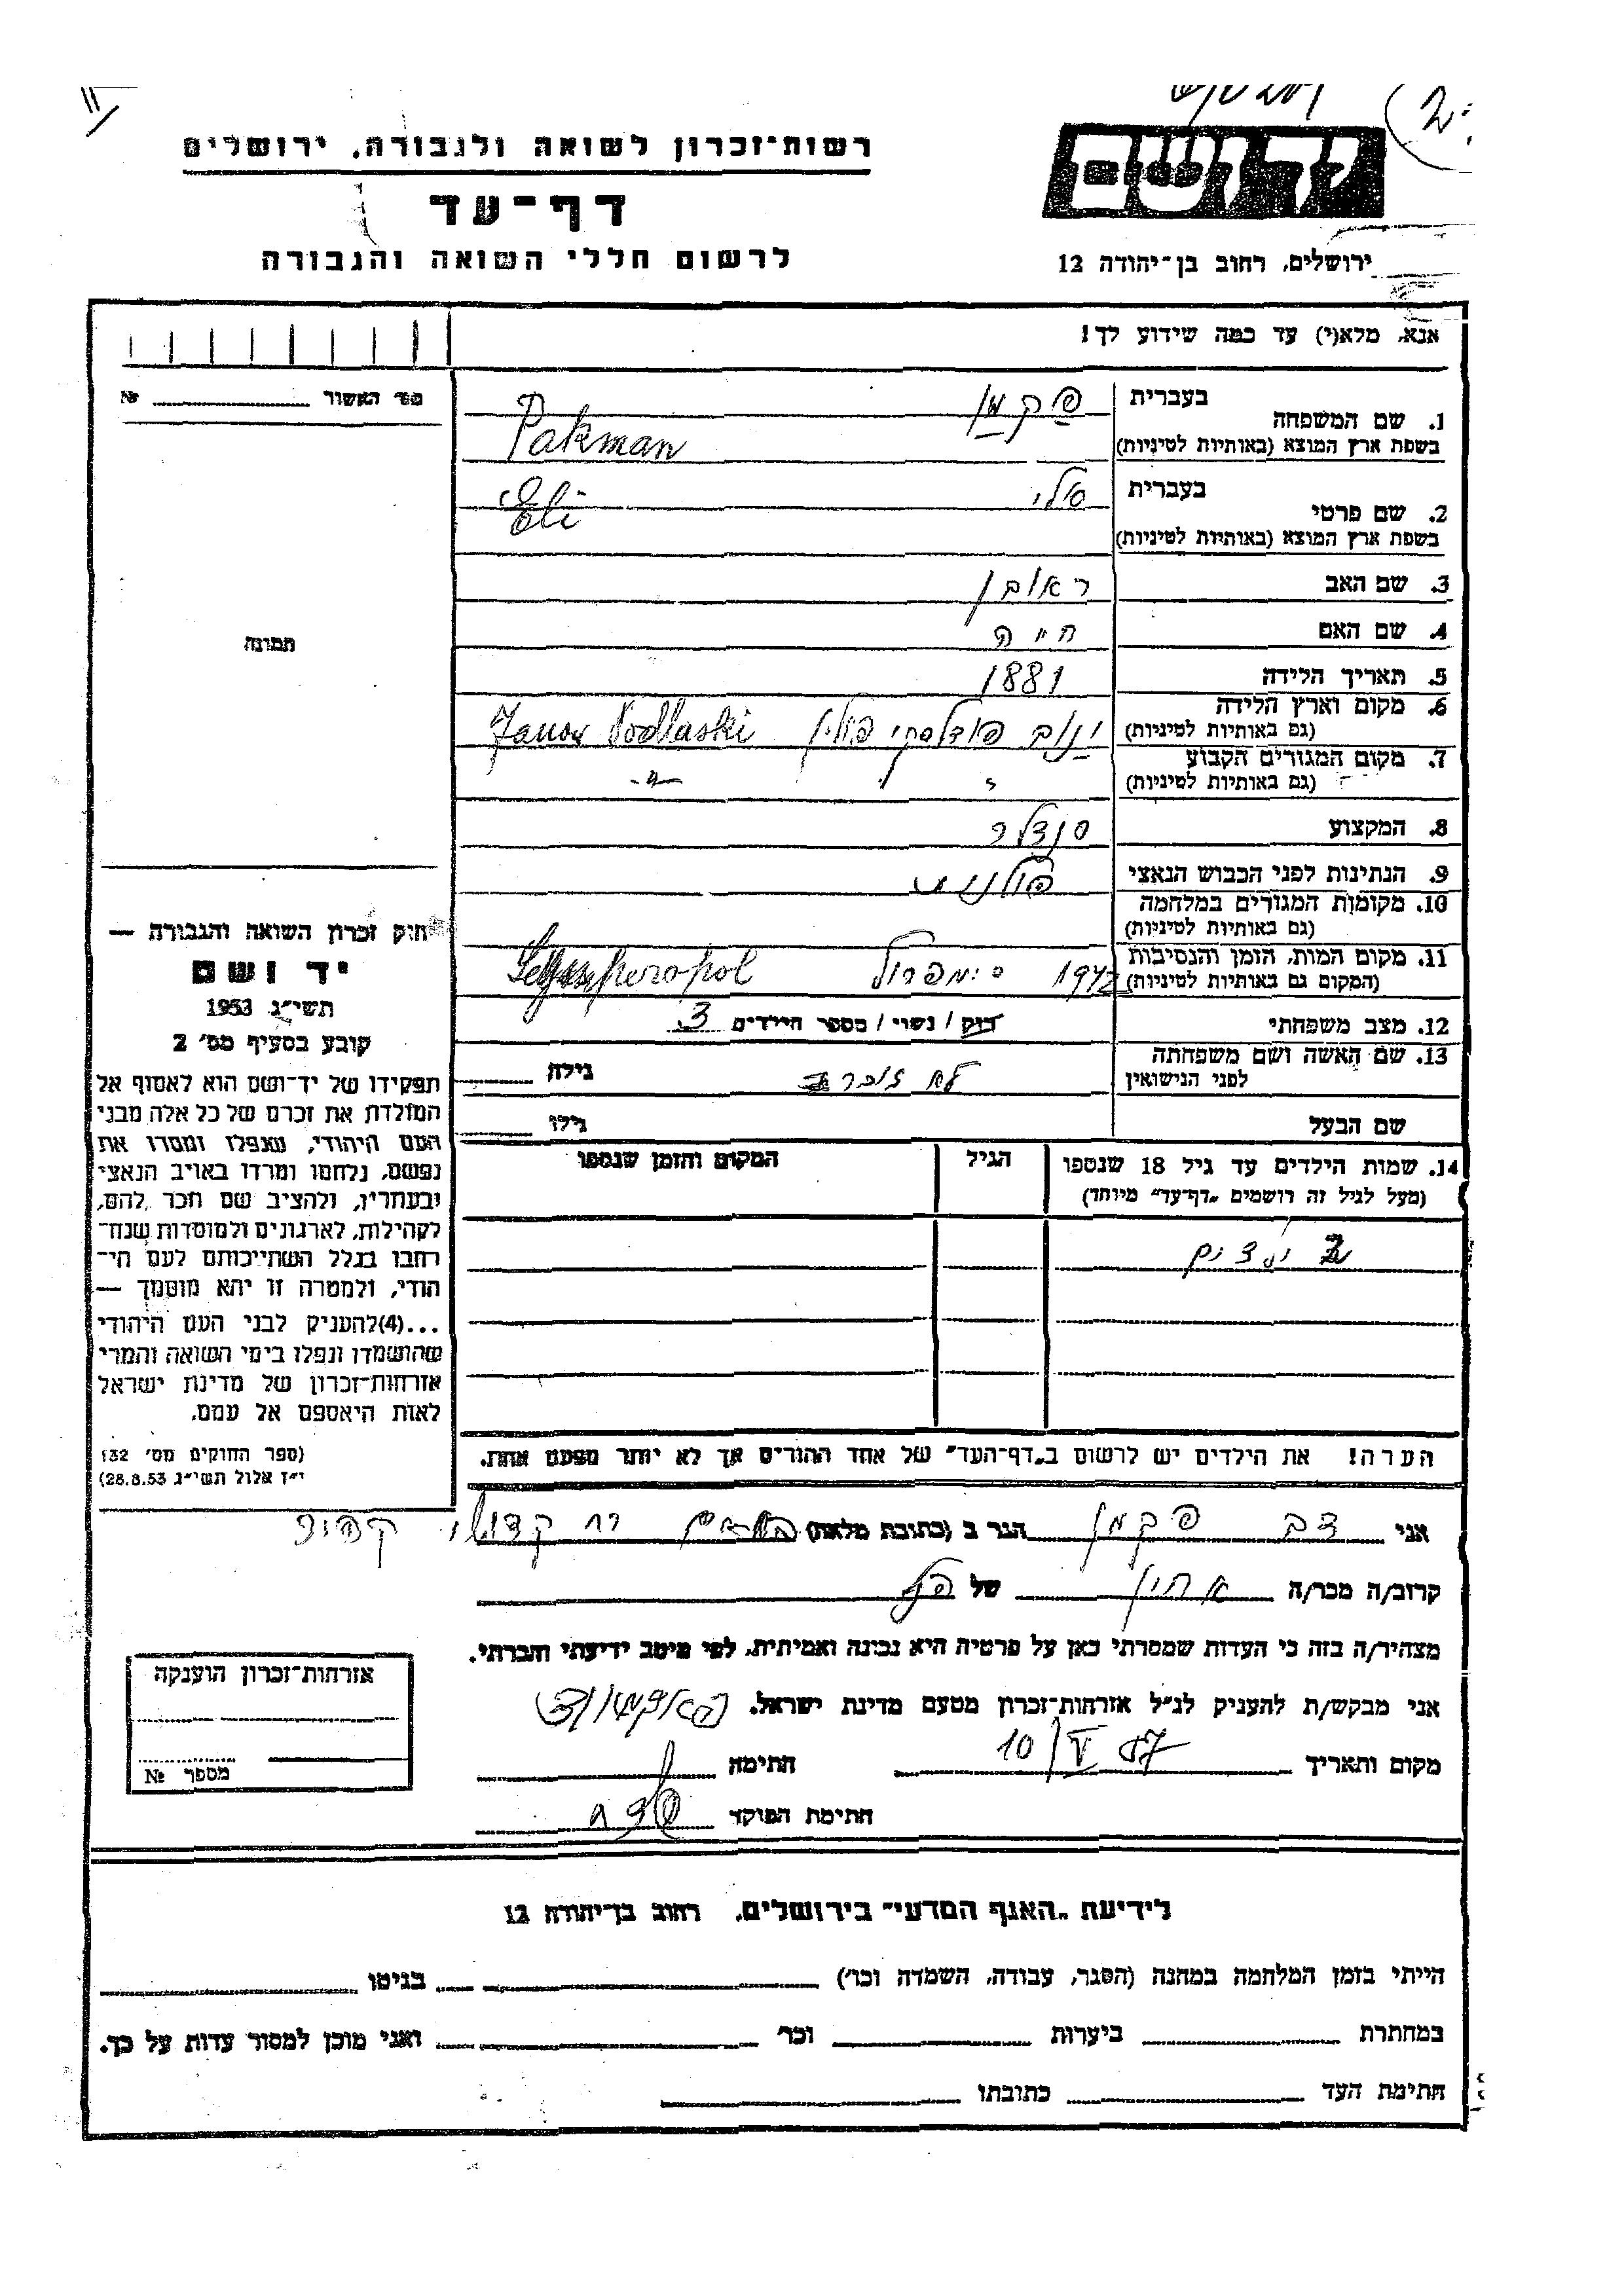 רשות־זכרון לשואה ולגבורה, ירושלים
דף־עד
לרשום חללי השואה והגבורה
ידושם
ירושלים, רחוב בן־יהודה 12
אנא, מלא(י) עד כמה שידוע לך!
מס' האשור № 
1. שם המשפחה בעברית פקמן
בשפת ארץ המוצא (באותיות לטיניות) Pakman
2. שם פרטי בעברית
בשפת ארץ המוצא (באותיות לטיניות) Eli
3. שם האב ראובן
4. שם האם חיה
5. תאריך הלידה 1881
6. מקום וארץ הלידה ינוב פודלסקי פולין Janow Podlaski
(גם באותיות לטיניות)
7. מקום המגורים הקבוע
(גם באותיות לטיניות) -"-
8. המקצוע סנדלר
9. הנתינות לפני הכבוש הנאצי פולנית
10. מקומות המגורים במלחמה
(גם באותיות לטיניות)
11. מקום המות, הזמן והנסיבות 1942 סימפרופול
(המקום גם באותיות לטיניות)
12. מצב משפחתי רוק / נשוי / מספר הילדים 3
13. שם האשה ושם משפחתה לפני הנישואין לא זוכר גילה
שם הבעל גילו
14. שמות הילדים עד גיל 18 שנספו הגיל המקום והזמן שנספו
(מעל לגיל זה רושמים "דף־עד" מיוחד)
ילדים
הערה! את הילדים יש לרשום ב"דף־העד" של אחד ההורים אך לא יותר מפעם אחת.
תמונה
חוק זכרון השואה והגבורה —
יד ושם
תשי"ג 1953
קובע בסעיף מס' 2
תפקידו של יד־ושם הוא לאסוף אל
המולדת את זכרם של כל אלה מבני
העם היהודי, שנפלו ומסרו את
נפשם, נלחמו ומרדו באויב הנאצי
ובעוזריו, ולהציב שם וזכר להם,
לקהילות, לארגונים ולמוסדות שנח־
רבו בגלל השתייכותם לעם הי־
הודי, ולמטרה זו יהא מוסמך —
...(4)להעניק לבני העם היהודי
שהושמדו ונפלו בימי השואה והמרי
אזרחות־זכרון של מדינת ישראל
לאות היאספם אל עמם.
(ספר החוקים מס' 132
י"ז אלול תשי"ג 28.8.53)
אני דב פקמן הגר ב (כתובת מלאה) בת ים רח קדושי קהיר
קרוב/ה מכר/ה אחין של הנ"ל
מצהיר/ה בזה כי העדות שמסרתי כאן על פרטיה היא נכונה ואמיתית, לפי מיטב ידיעתי והכרתי.
אני מבקש/ת להעניק לנ"ל אזרחות־זכרון מטעם מדינת ישראל.
מקום ותאריך 10/V 57 חתימה
חתימת הפוקד
אזרחות־זכרון הוענקה
מספר №
לידיעת "האגף המדעי" בירושלים, רחוב בן־יהודה 12
הייתי בזמן המלחמה במחנה (הסגר, עבודה, השמדה וכר') בגיטו
במחתרת ביערות וכר' ואני מוכן למסור עדות על כך.
חתימת העד כתובתו